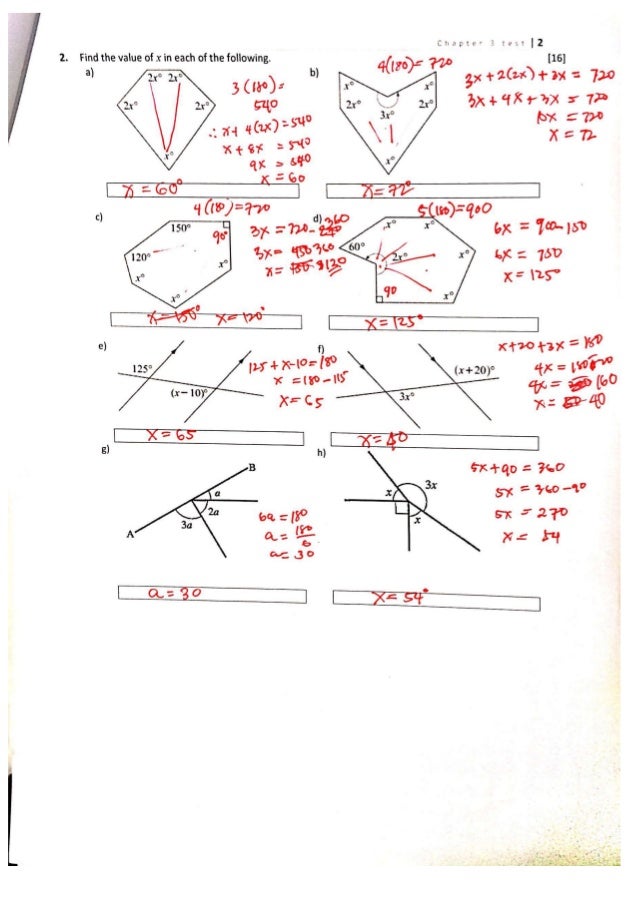 Chapter 3 test | 2
2. Find the value of x in each of the following. [16]
a)
2x° 2x°
2x° 2x°
x°
3(180)=
540
∴ x+ 4(2x)=540
x+8x = 540
9x = 540
x = 60
x = 60°
b)
4(180)= 720
x° x°
2x° 2x°
3x°
x°
3x+2(2x)+3x = 720
3x+4x+3x = 720
10x = 720
x = 72
x=72°
c)
4(180)=720
150° 90°
120°
x° x°
x°
3x = 720-360
3x= 360
x= 120
x=150° x=120°
d)
5(180)=900
60°
x° x°
2x° x°
90 x°
6x = 900-150
6x = 750
x = 125°
x=125°
e)
125°
(x−10)°
125+x-10=180
x =180-115
x=65
x=65
f)
(x+20)°
3x°
x+20+3x = 180
4x = 180-20
4x = 160
x= 40
x=40
g)
B
a
2a
3a
A
6a=180
a= 180
6
a= 30
a=30
h)
3x
x
x
5x+90 = 360
5x = 360-90
5x = 270
x = 54
x=54°